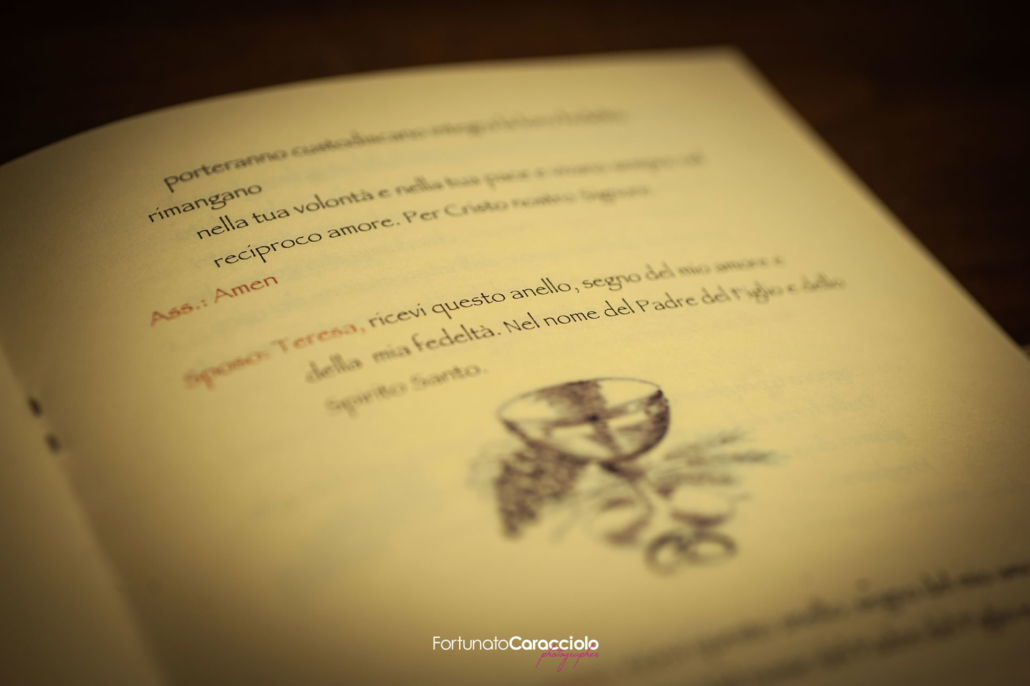 porteranno custodiscano integra la loro fedeltà
rimangano
nella tua volontà e nella tua pace e vivano sempre nel
reciproco amore. Per Cristo nostro Signore
Ass.: Amen
Sposo: Teresa, ricevi questo anello, segno del mio amore e
della mia fedeltà. Nel nome del Padre del Figlio e dello
Spirito Santo.
questo anello, segno del mio
FortunatoCaracciolo
photographer